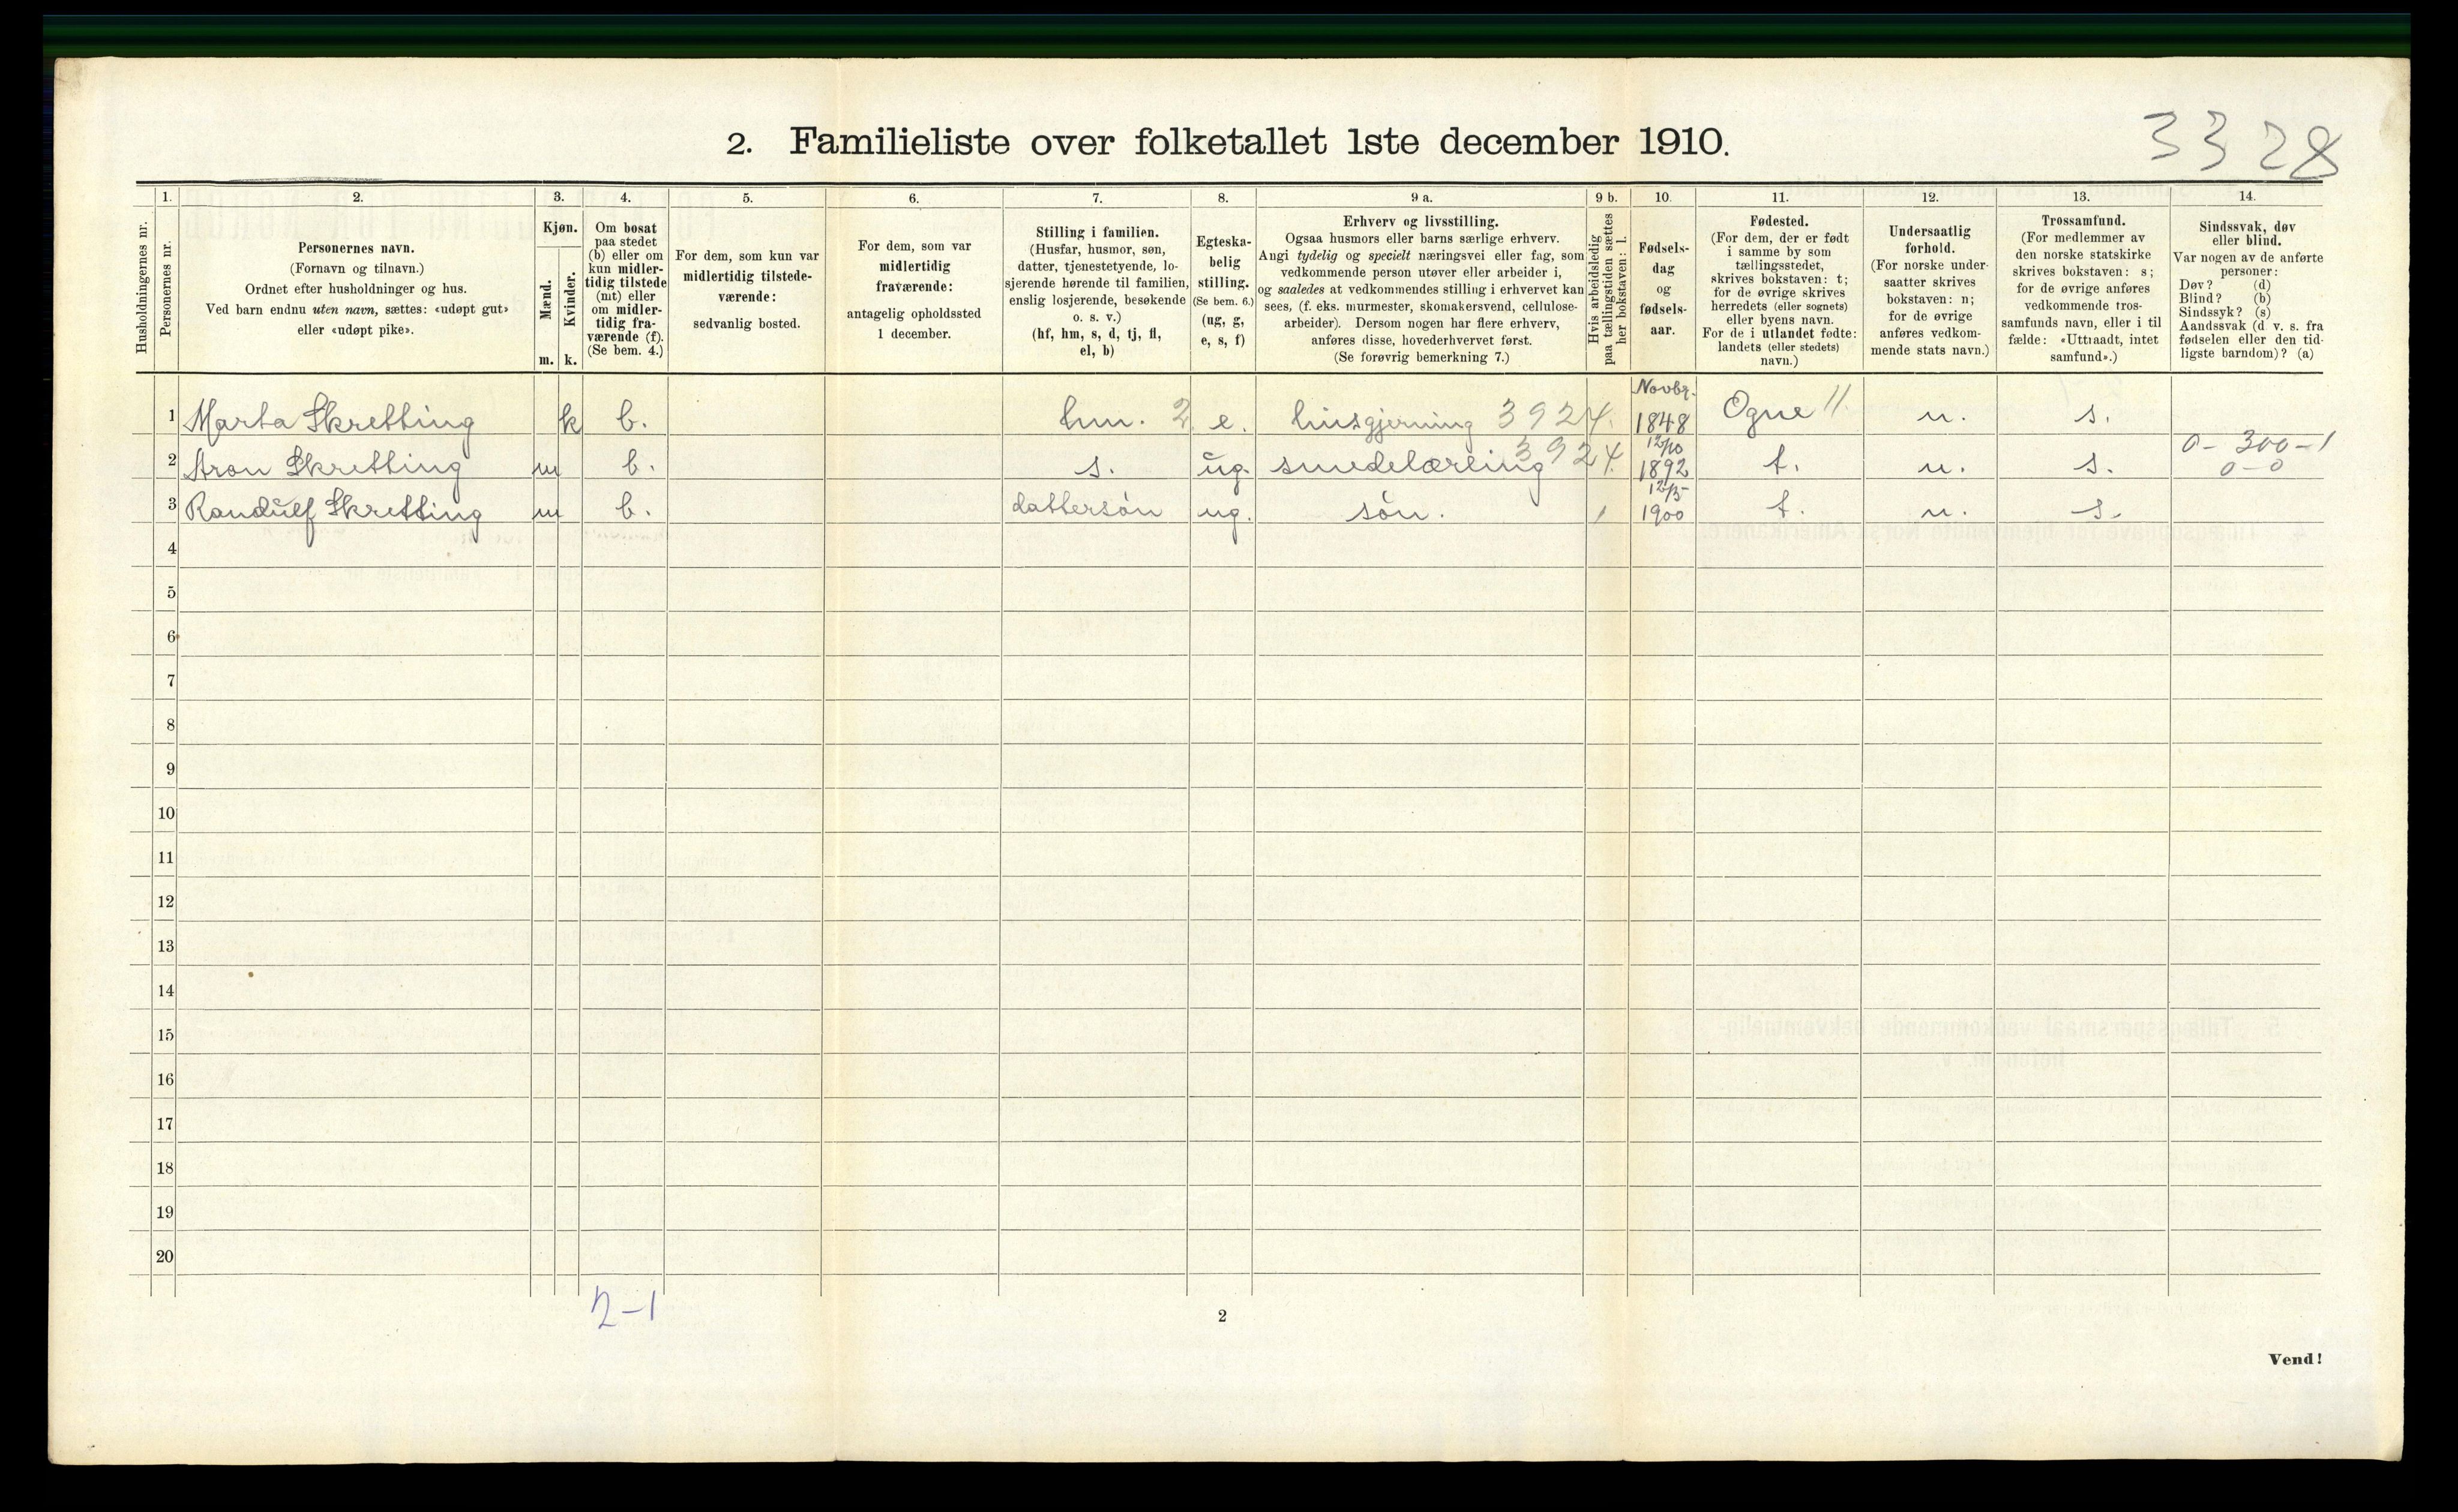 3328
2. Familieliste over folketallet 1ste december 1910.
Husholdningernes nr.
1. Personernes nr.
2. Personernes navn.
(Fornavn og tilnavn.)
Ordnet efter husholdninger og hus.
Ved barn endnu uten navn, sættes: «udøpt gut»
eller «udøpt pike».
3. Kjøn.
Mænd. m.
Kvinder. k.
4. Om bosat
paa stedet
(b) eller om
kun midler-
tidig tilstede
(mt) eller
om midler-
tidig fra-
værende (f).
(Se bem. 4.)
5. For dem, som kun var
midlertidig tilstede-
værende:
sedvanlig bosted.
6. For dem, som var
midlertidig
fraværende:
antagelig opholdssted
1 december.
7. Stilling i familien.
(Husfar, husmor, søn,
datter, tjenestetyende, lo-
sjerende hørende til familien,
enslig losjerende, besøkende
o. s. v.)
(hf, hm, s, d, tj, fl,
el, b)
8. Egteska-
belig
stilling.
(Se bem. 6.)
(ug, g,
e, s, f)
9 a. Erhverv og livsstilling.
Ogsaa husmors eller barns særlige erhverv.
Angi tydelig og specielt næringsvei eller fag, som
vedkommende person utøver eller arbeider i,
og saaledes at vedkommendes stilling i erhvervet kan
sees, (f. eks. murmester, skomakersvend, cellulose-
arbeider). Dersom nogen har flere erhverv,
anføres disse, hovederhvervet først.
(Se forøvrig bemerkning 7.)
9 b. Hvis arbeidsledig
paa tællingstiden sættes
her bokstaven: l.
10. Fødsels-
dag
og
fødsels-
aar.
11. Fødested.
(For dem, der er født
i samme by som
tællingsstedet,
skrives bokstaven: t;
for de øvrige skrives
herredets (eller sognets)
eller byens navn.
For de i utlandet fødte:
landets (eller stedets)
navn.)
12. Undersaatlig
forhold.
(For norske under-
saatter skrives
bokstaven: n;
for de øvrige
anføres vedkom-
mende stats navn.)
13. Trossamfund.
(For medlemmer av
den norske statskirke
skrives bokstaven: s;
for de øvrige anføres
vedkommende tros-
samfunds navn, eller i til
fælde: «Uttraadt, intet
samfund».)
14. Sindssvak, døv
eller blind.
Var nogen av de anførte
personer:
Døv? (d)
Blind? (b)
Sindssyk? (s)
Aandssvak (d. v. s. fra
fødselen eller den tid-
ligste barndom)? (a)
1 Marta Skretting k b. hm. 2 e. husgjerning 3924. Novbr. 1848 Ogne 11 n. s.
2 Aron Skretting m b. s. ug. smedelærling 3924. 12/10 1892 t. n. s. 0-300-1
0-0
3 Randulf Skretting m b. dattersøn ug. søn. 1 12/5 1900 t. n. s.
4
5
6
7
8
9
10
11
12
13
14
15
16
17
18
19
20
2-1
2
Vend!